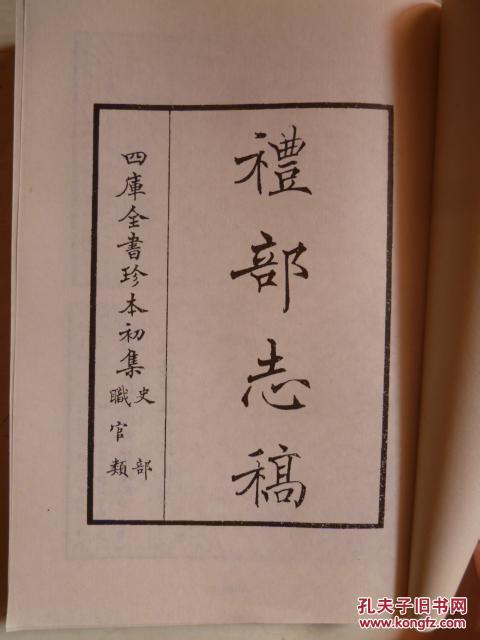 禮部志稿
四庫全書珍本初集
史部
職官類
孔夫子旧书网
www.kongfz.com